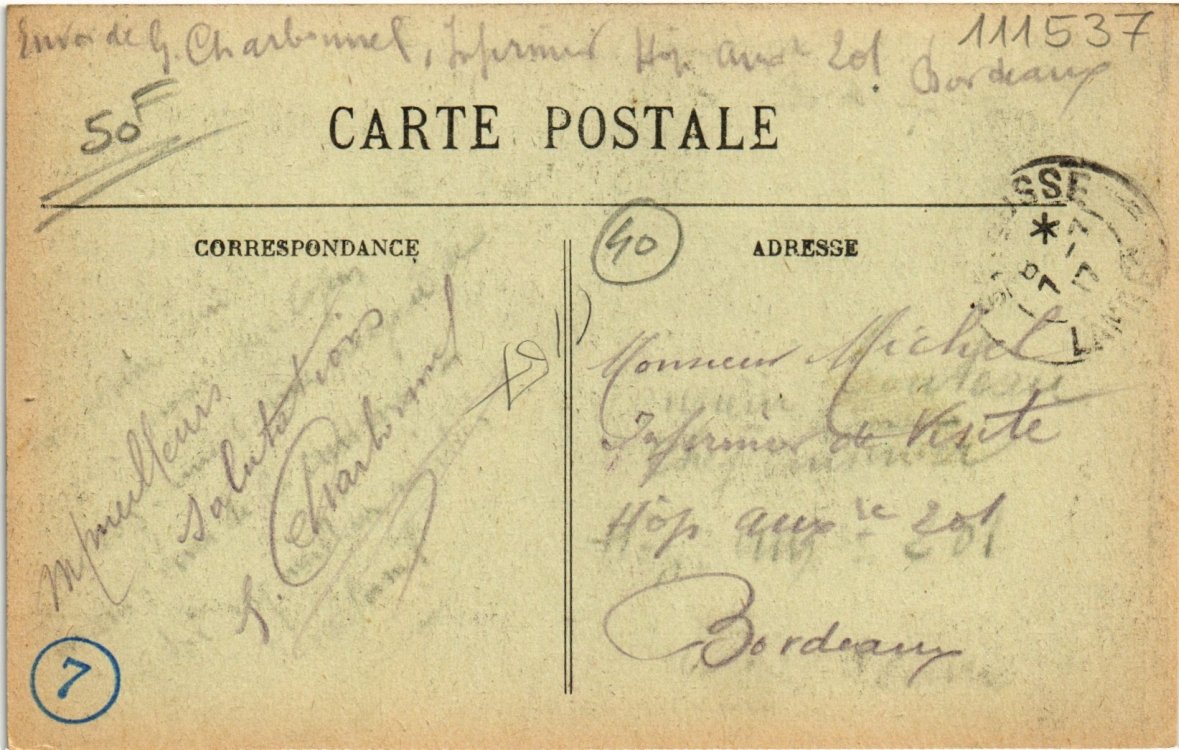 111537
Envoi de G. Charbonnel, Infirmier Hôp auxre 201 Bordeaux
50F
CARTE POSTALE
CORRESPONDANCE
40
ADRESSE
7-7
17
Meilleurs
salutations
G. Charbonnel
Monsieur Michel
Infirmier de Visite
Hôp auxre 201
Bordeaux
7